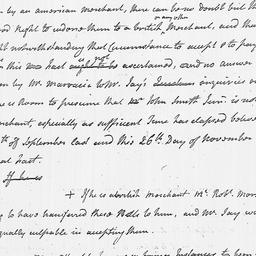 by an american merchant, there can be no doubt but th
or any other
ed Right to indorse them to a british Merchant, and tha
ll notwithstanding that Circumstance to accept & to pay
this was Fact ought to be ascertained, and no answer
en by Mr. to Mr. Jay's inquiries o
is Room to presume that John Smith Junr. is not
rchant, especially as sufficient Time has elapsed betwee
th of September last and this 26th. Day of November
at Fact.
If he is
+ If he is a british merchant Mr. Robt. Mor
g to have transferred these Bills to him, and Mr. Jay w
qually culpable in accepting them.
Instances to